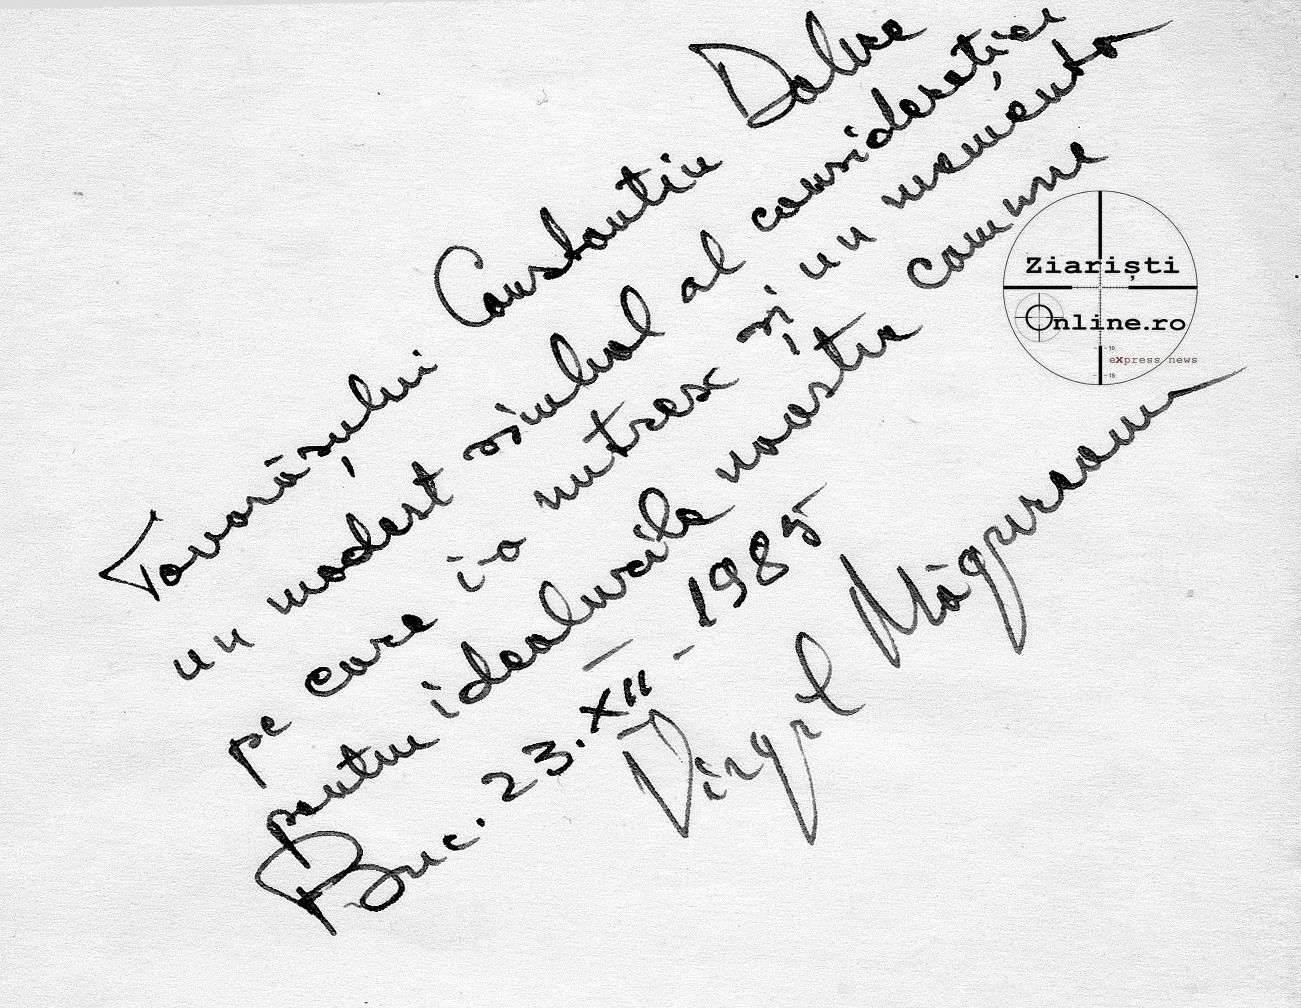 Tovarășului Constantin Dobre
un modest simbol al considerației
pe care i-o nutresc și un memento
pentru idealurile noastre comune
Buc. 23.XII - 1985
Virgil Măgureanu
Ziariști
Online.ro
express news